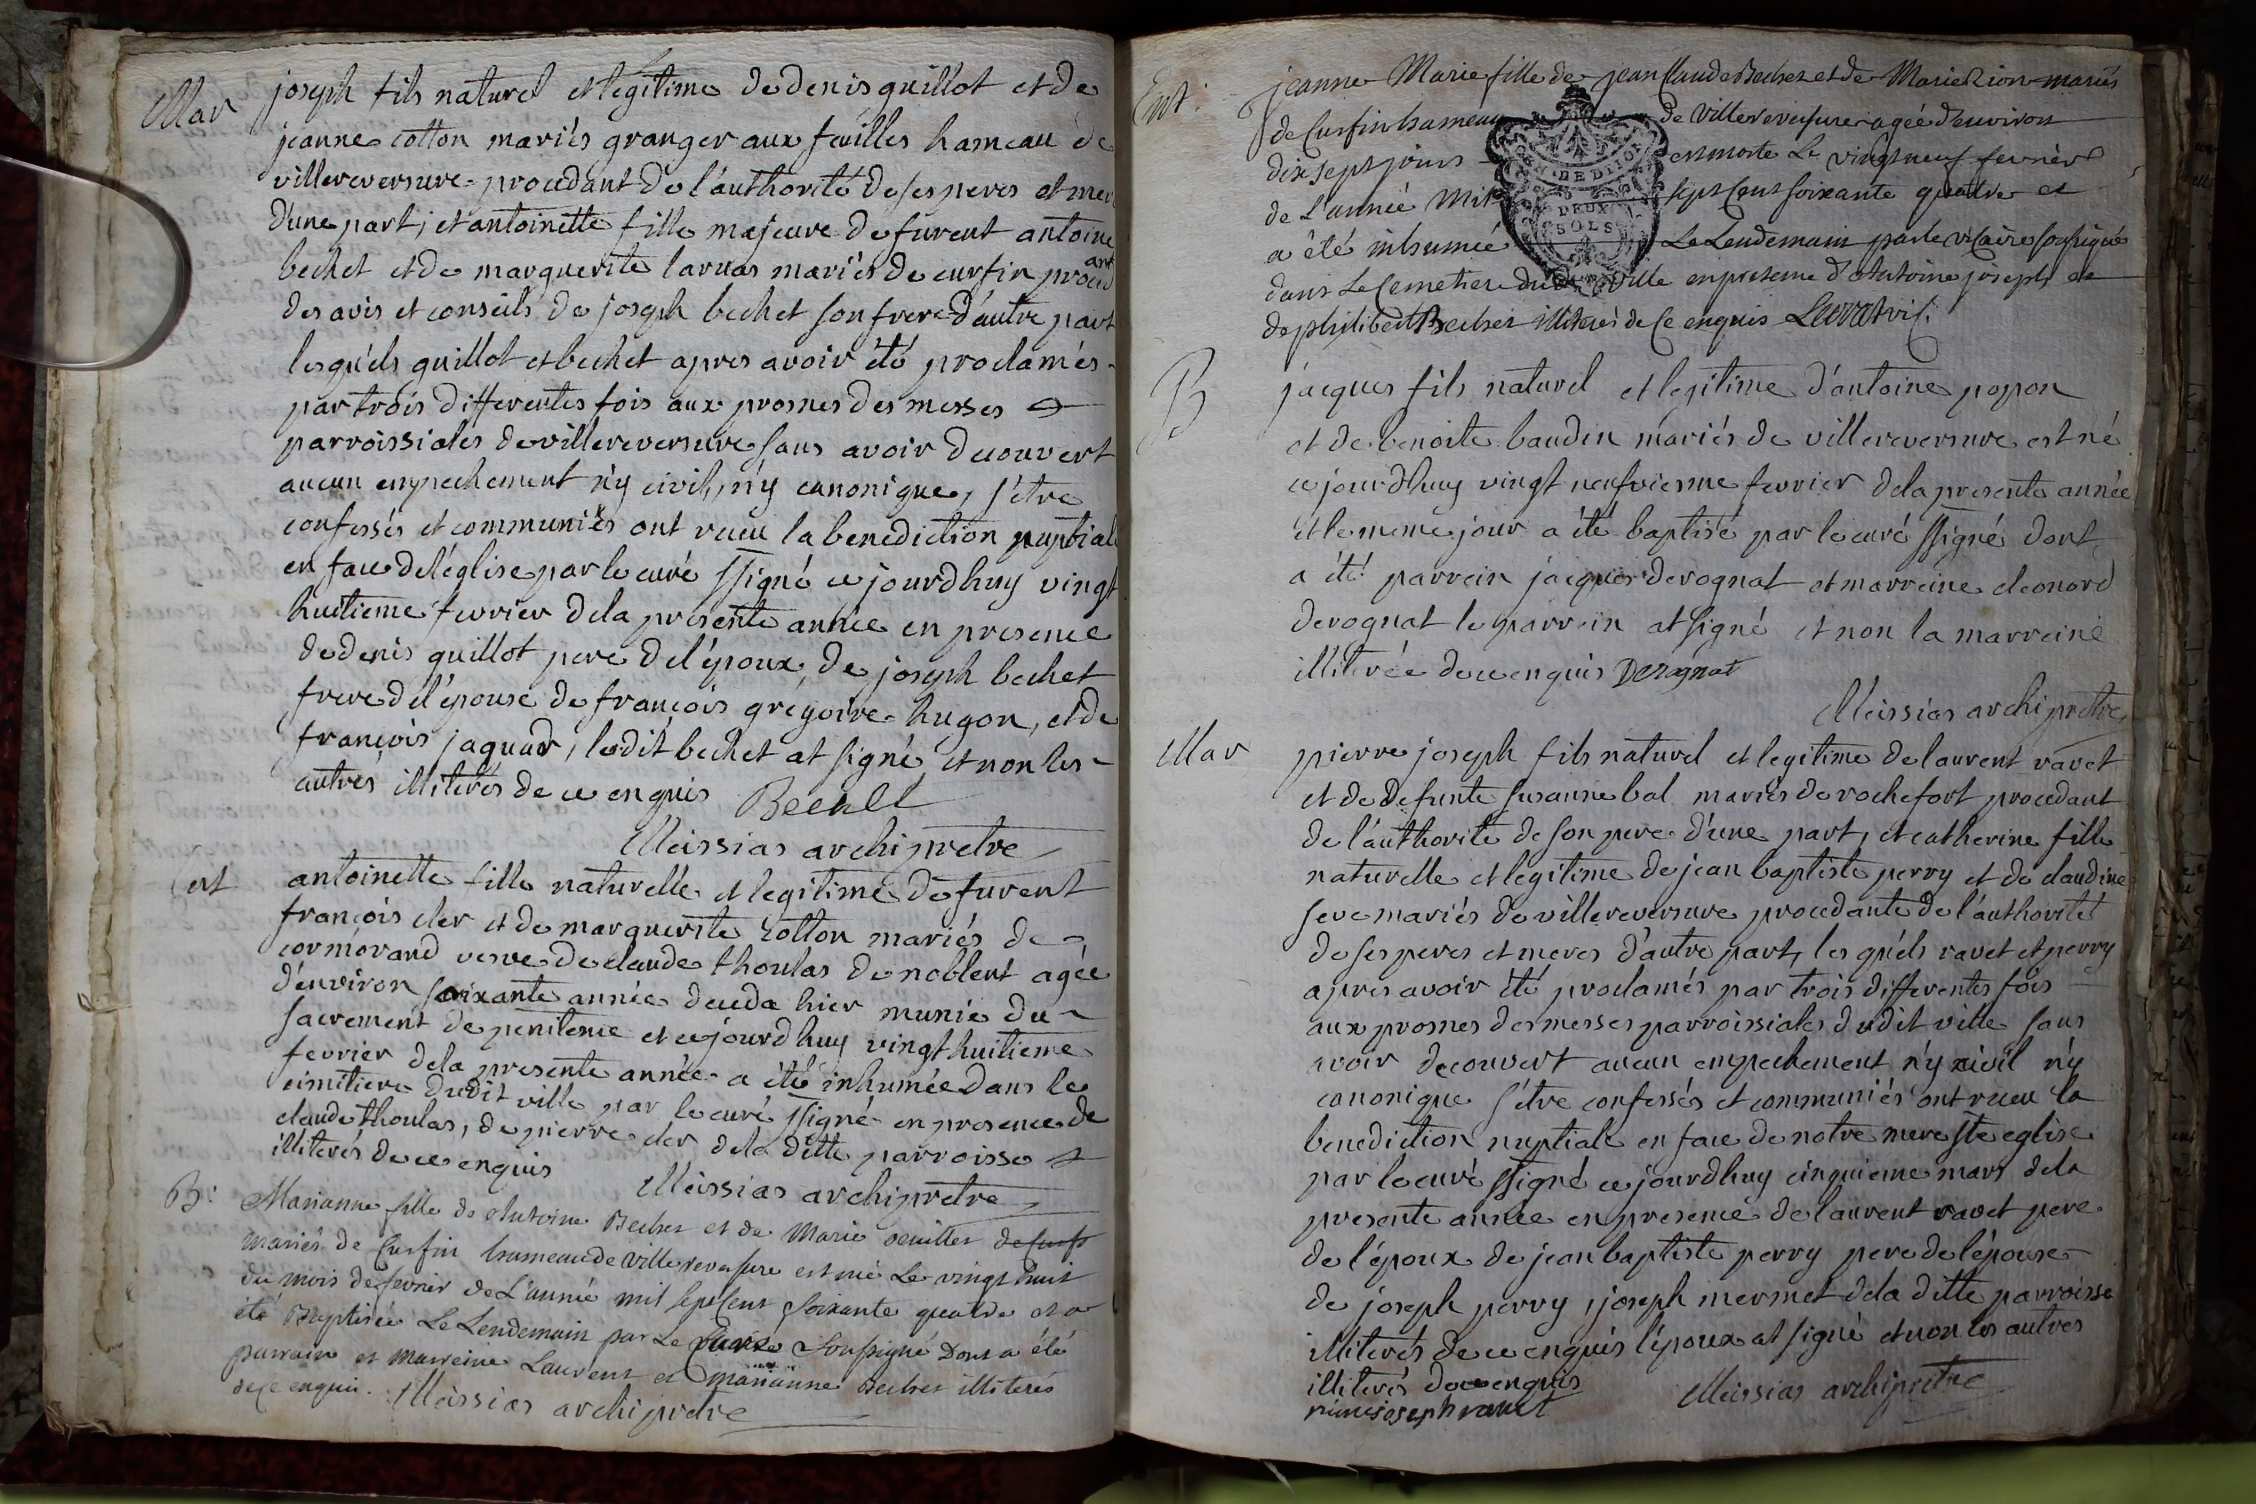 Mar
joseph fils naturel et legitime de denis guillot et de
jeanne cotton mariés granger aux feuilles hameau de
villereversure procedant de l'authorité de ses peres et mer
d'une part, et antoinette fille majeure de furent antoine
bechet et de marguerite larvas mariés de curfin proced
ant
des avis et conseils de joseph bechet son frere d'autre part
lesquels guillot et bechet apres avoir été proclamés
par trois differentes fois aux prosnes des messes
parroissiales de villereversure sans avoir decouvert
aucun empechement n'y civil, n'y canonique, s'etre
confessés et communiés ont receu la benediction nuptiale
en face de l'église par le curé ssigné ce jourdhuy vingt
huitieme fevrier dela presente année en presence
de denis guillot pere de l'époux, de joseph bechet
frere de l'épouse de françois grégoire hugon, et de
françois jaquad, ledit bechet at signé et non les
autres illiterés de ce enquis Bechet
Meissias archiprêtre
Ent
antoinette fille naturelle et legitime de furent
françois cler et de marguerite cotton mariés de
cormorand veuve de claude thoulas de noblent agée
d'environ soixante année deceda hier munie du
sacrement de penitence et ce jourdhuy vingt huitieme
fevrier dela presente année a été inhumée dans le
cimitiere dudit ville par le curé ssigné en presence de
claude thoulas, de pierre cler dela ditte parroisse
illiterés de ce enquis Meissias archiprêtre
B:
Marianne fille de Antoine Bechet et de Marie seuillet de curfi
mariés de Curfin hameau de Villereversure est née Le vingt huit
du mois de fevrier de L'année mil sept Cent Soixante quatre et a
été Baptisée Le Lendemain par Le Curé Soussigné Dont a été
parrain et marreine Laurent et marianne Bechet illiterés
de Ce enquis. Meissias archiprêtre
Ent:
jeanne Marie fille de jean Claude Bechet et de Marie Rion mariés
de Curfin hameau de Villereversure agée d'environ
dix sept jours est morte Le vingt neuf fevrier
de L'année Mil sept Cent soixante quatre et
a été inhumée Le Lendemain par le vicaire soussigné
dans Le Cemetiere dud ville en presence d'Antoine joseph et
de philibert Bechet illiterés de Ce enquis Levrat vic:
DE DIJON
DEUX
SOLS
B
jacques fils naturel et legitime d'antoine popon
et de benoite baudin mariés de villereversure est né
ce jourdhuy vingt neufviesme fevrier dela presente année
et le meme jour a été baptisé par le curé ssigné dont
a été parrein jacques derognat et marreine eleonord
derognat le parrein at signé et non la marreine
illiterée de ce enquis Derognat
Meissias archiprêtre
Mar
pierre joseph fils naturel et legitime de laurent ravet
et de defunte susanne bal mariés de rochefort procedant
de l'authorité de son pere d'une part, et catherine fille
naturelle et legitime de jean baptiste perry et de claudine
seve mariés de villereversure procedante de l'authorité
de ses peres et meres d'autre part, lesquels ravet et perry
apres avoir été proclamés par trois differentes fois
aux prosnes des messes parroissiales dudit ville sans
avoir decouvert aucun empechement n'y civil n'y
canonique s'étre confessés et communiés ont receu la
benediction nuptiale en face de notre mere ste eglise
par le curé ssigné ce jourdhuy cinquieme mars dela
presente année en presence de laurent ravet pere
de l'époux de jean baptiste perry pere de l'épouse
de joseph perry, joseph mermet dela ditte parroisse
illiterés de ce enquis l'époux at signé et non les autres
illiterés de ce enquis Meissias archiprêtre
pierre joseph ravet